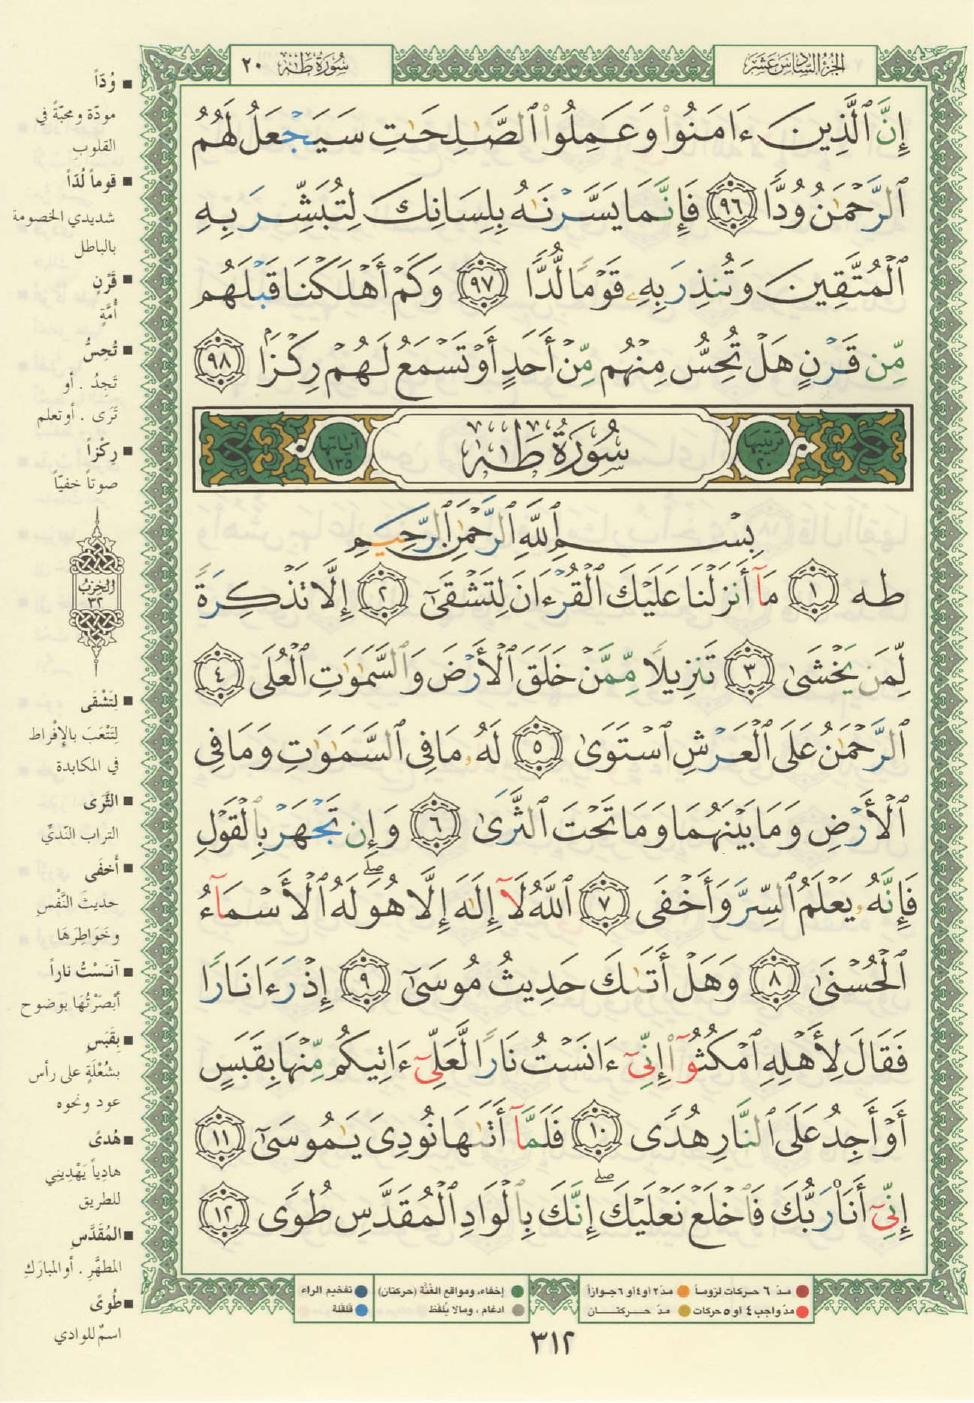 الجزء السادس عشر
سورة طه ٢٠
إِنَّ ٱلَّذِينَ ءَامَنُوا۟ وَعَمِلُوا۟ ٱلصَّـٰلِحَـٰتِ سَيَجْعَلُ لَهُمُ
ٱلرَّحْمَـٰنُ وُدًّا ﴿٩٦﴾ فَإِنَّمَا يَسَّرْنَـٰهُ بِلِسَانِكَ لِتُبَشِّرَ بِهِ
ٱلْمُتَّقِينَ وَتُنذِرَ بِهِۦ قَوْمًا لُّدًّا ﴿٩٧﴾ وَكَمْ أَهْلَكْنَا قَبْلَهُم
مِّن قَرْنٍ هَلْ تُحِسُّ مِنْهُم مِّنْ أَحَدٍ أَوْ تَسْمَعُ لَهُمْ رِكْزًۢا ﴿٩٨﴾
ترتيبها ٢٠
سورة طه
آياتها ١٣٥
بِسْمِ ٱللَّهِ ٱلرَّحْمَـٰنِ ٱلرَّحِيمِ
طه ﴿١﴾ مَآ أَنزَلْنَا عَلَيْكَ ٱلْقُرْءَانَ لِتَشْقَىٰٓ ﴿٢﴾ إِلَّا تَذْكِرَةً
لِّمَن يَخْشَىٰ ﴿٣﴾ تَنزِيلًا مِّمَّنْ خَلَقَ ٱلْأَرْضَ وَٱلسَّمَـٰوَٰتِ ٱلْعُلَى ﴿٤﴾
ٱلرَّحْمَـٰنُ عَلَى ٱلْعَرْشِ ٱسْتَوَىٰ ﴿٥﴾ لَهُۥ مَا فِى ٱلسَّمَـٰوَٰتِ وَمَا فِى
ٱلْأَرْضِ وَمَا بَيْنَهُمَا وَمَا تَحْتَ ٱلثَّرَىٰ ﴿٦﴾ وَإِن تَجْهَرْ بِٱلْقَوْلِ
فَإِنَّهُۥ يَعْلَمُ ٱلسِّرَّ وَأَخْفَى ﴿٧﴾ ٱللَّهُ لَآ إِلَـٰهَ إِلَّا هُوَ ۖ لَهُ ٱلْأَسْمَآءُ
ٱلْحُسْنَىٰ ﴿٨﴾ وَهَلْ أَتَىٰكَ حَدِيثُ مُوسَىٰٓ ﴿٩﴾ إِذْ رَءَا نَارًا
فَقَالَ لِأَهْلِهِ ٱمْكُثُوٓا۟ إِنِّىٓ ءَانَسْتُ نَارًا لَّعَلِّىٓ ءَاتِيكُم مِّنْهَا بِقَبَسٍ
أَوْ أَجِدُ عَلَى ٱلنَّارِ هُدًى ﴿١٠﴾ فَلَمَّآ أَتَىٰهَا نُودِىَ يَـٰمُوسَىٰٓ ﴿١١﴾
إِنِّىٓ أَنَا۠ رَبُّكَ فَٱخْلَعْ نَعْلَيْكَ ۖ إِنَّكَ بِٱلْوَادِ ٱلْمُقَدَّسِ طُوًى ﴿١٢﴾
■ وُدّاً
مودّة ومحبّةً في
القلوب
■ قوماً لُدّاً
شديدي الخصومة
بالباطل
■ قَرْنٍ
أُمّةٍ
■ تُحِسُّ
تَجِدُ . أو
تَرَى . أو تعلم
■ رِكْزاً
صوتاً خفيّاً
الحزب
٣٢
■ لِتَشْقَى
لِتَتْعَبَ بالإفْراط
في المكابدة
■ الثَّرَى
التراب النّديِّ
■ أَخفَى
حديثَ النَّفْسِ
وخَوَاطِرَهَا
■ آنَسْتُ ناراً
أَبْصَرْتُهَا بوضوح
■ بِقَبَسٍ
بشُعْلَةٍ على رأس
عود ونحوه
■ هُدىً
هادِياً يَهْدِينِي
للطريق
■ المُقَدَّسِ
المطهَّرِ . أو المبارَكِ
■ طُوىً
اسمٌ للوادي
مدّ ٦ حركات لزوماً ● مدّ ٢ أو ٤ أو ٦ جوازاً
مدّ واجب ٤ أو ٥ حركات ● مدّ حركتان
إخفاء، ومواقع الغُنَّة (حركتان)
ادغام ، ومالا يُلفَظ
تفخيم الراء
قلقلة
٣١٢